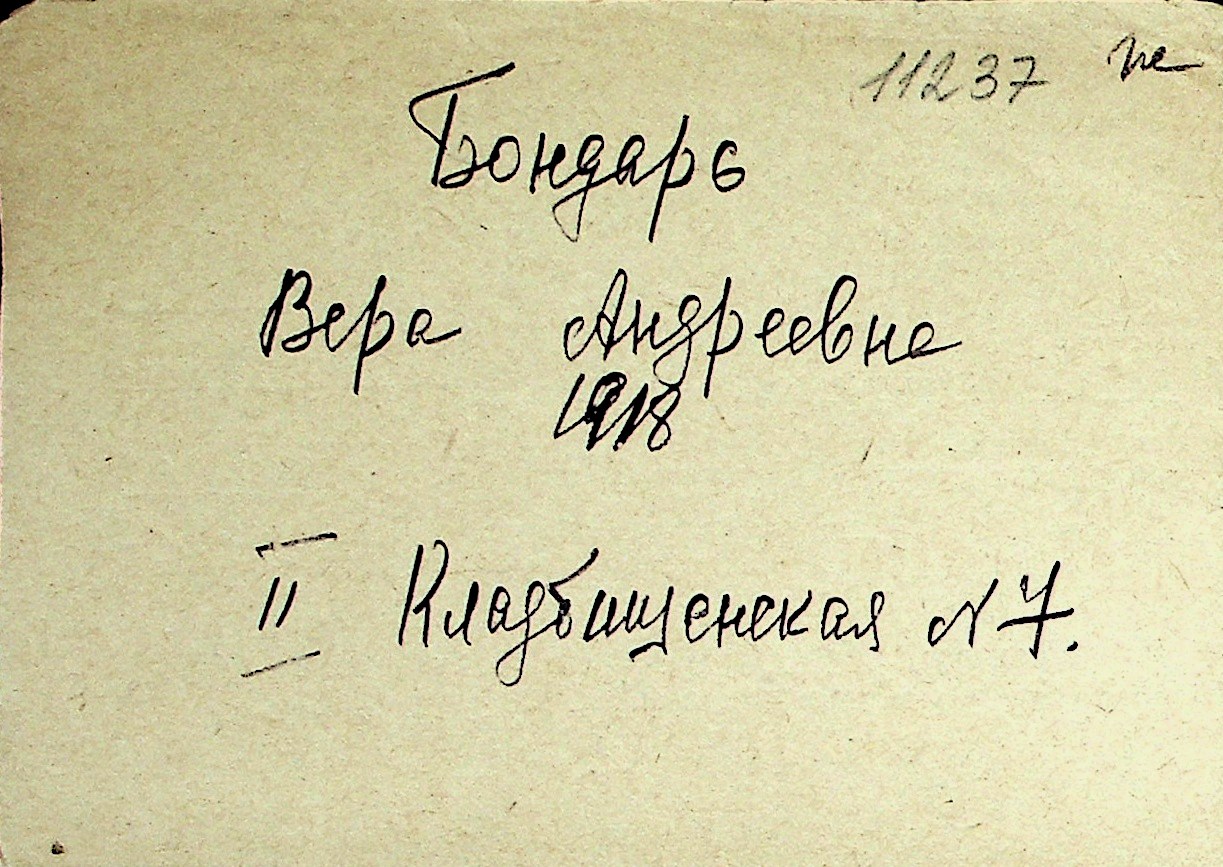 11237
Бондарь
Вера Андреевна
1918
II Кладбищенская N 7.